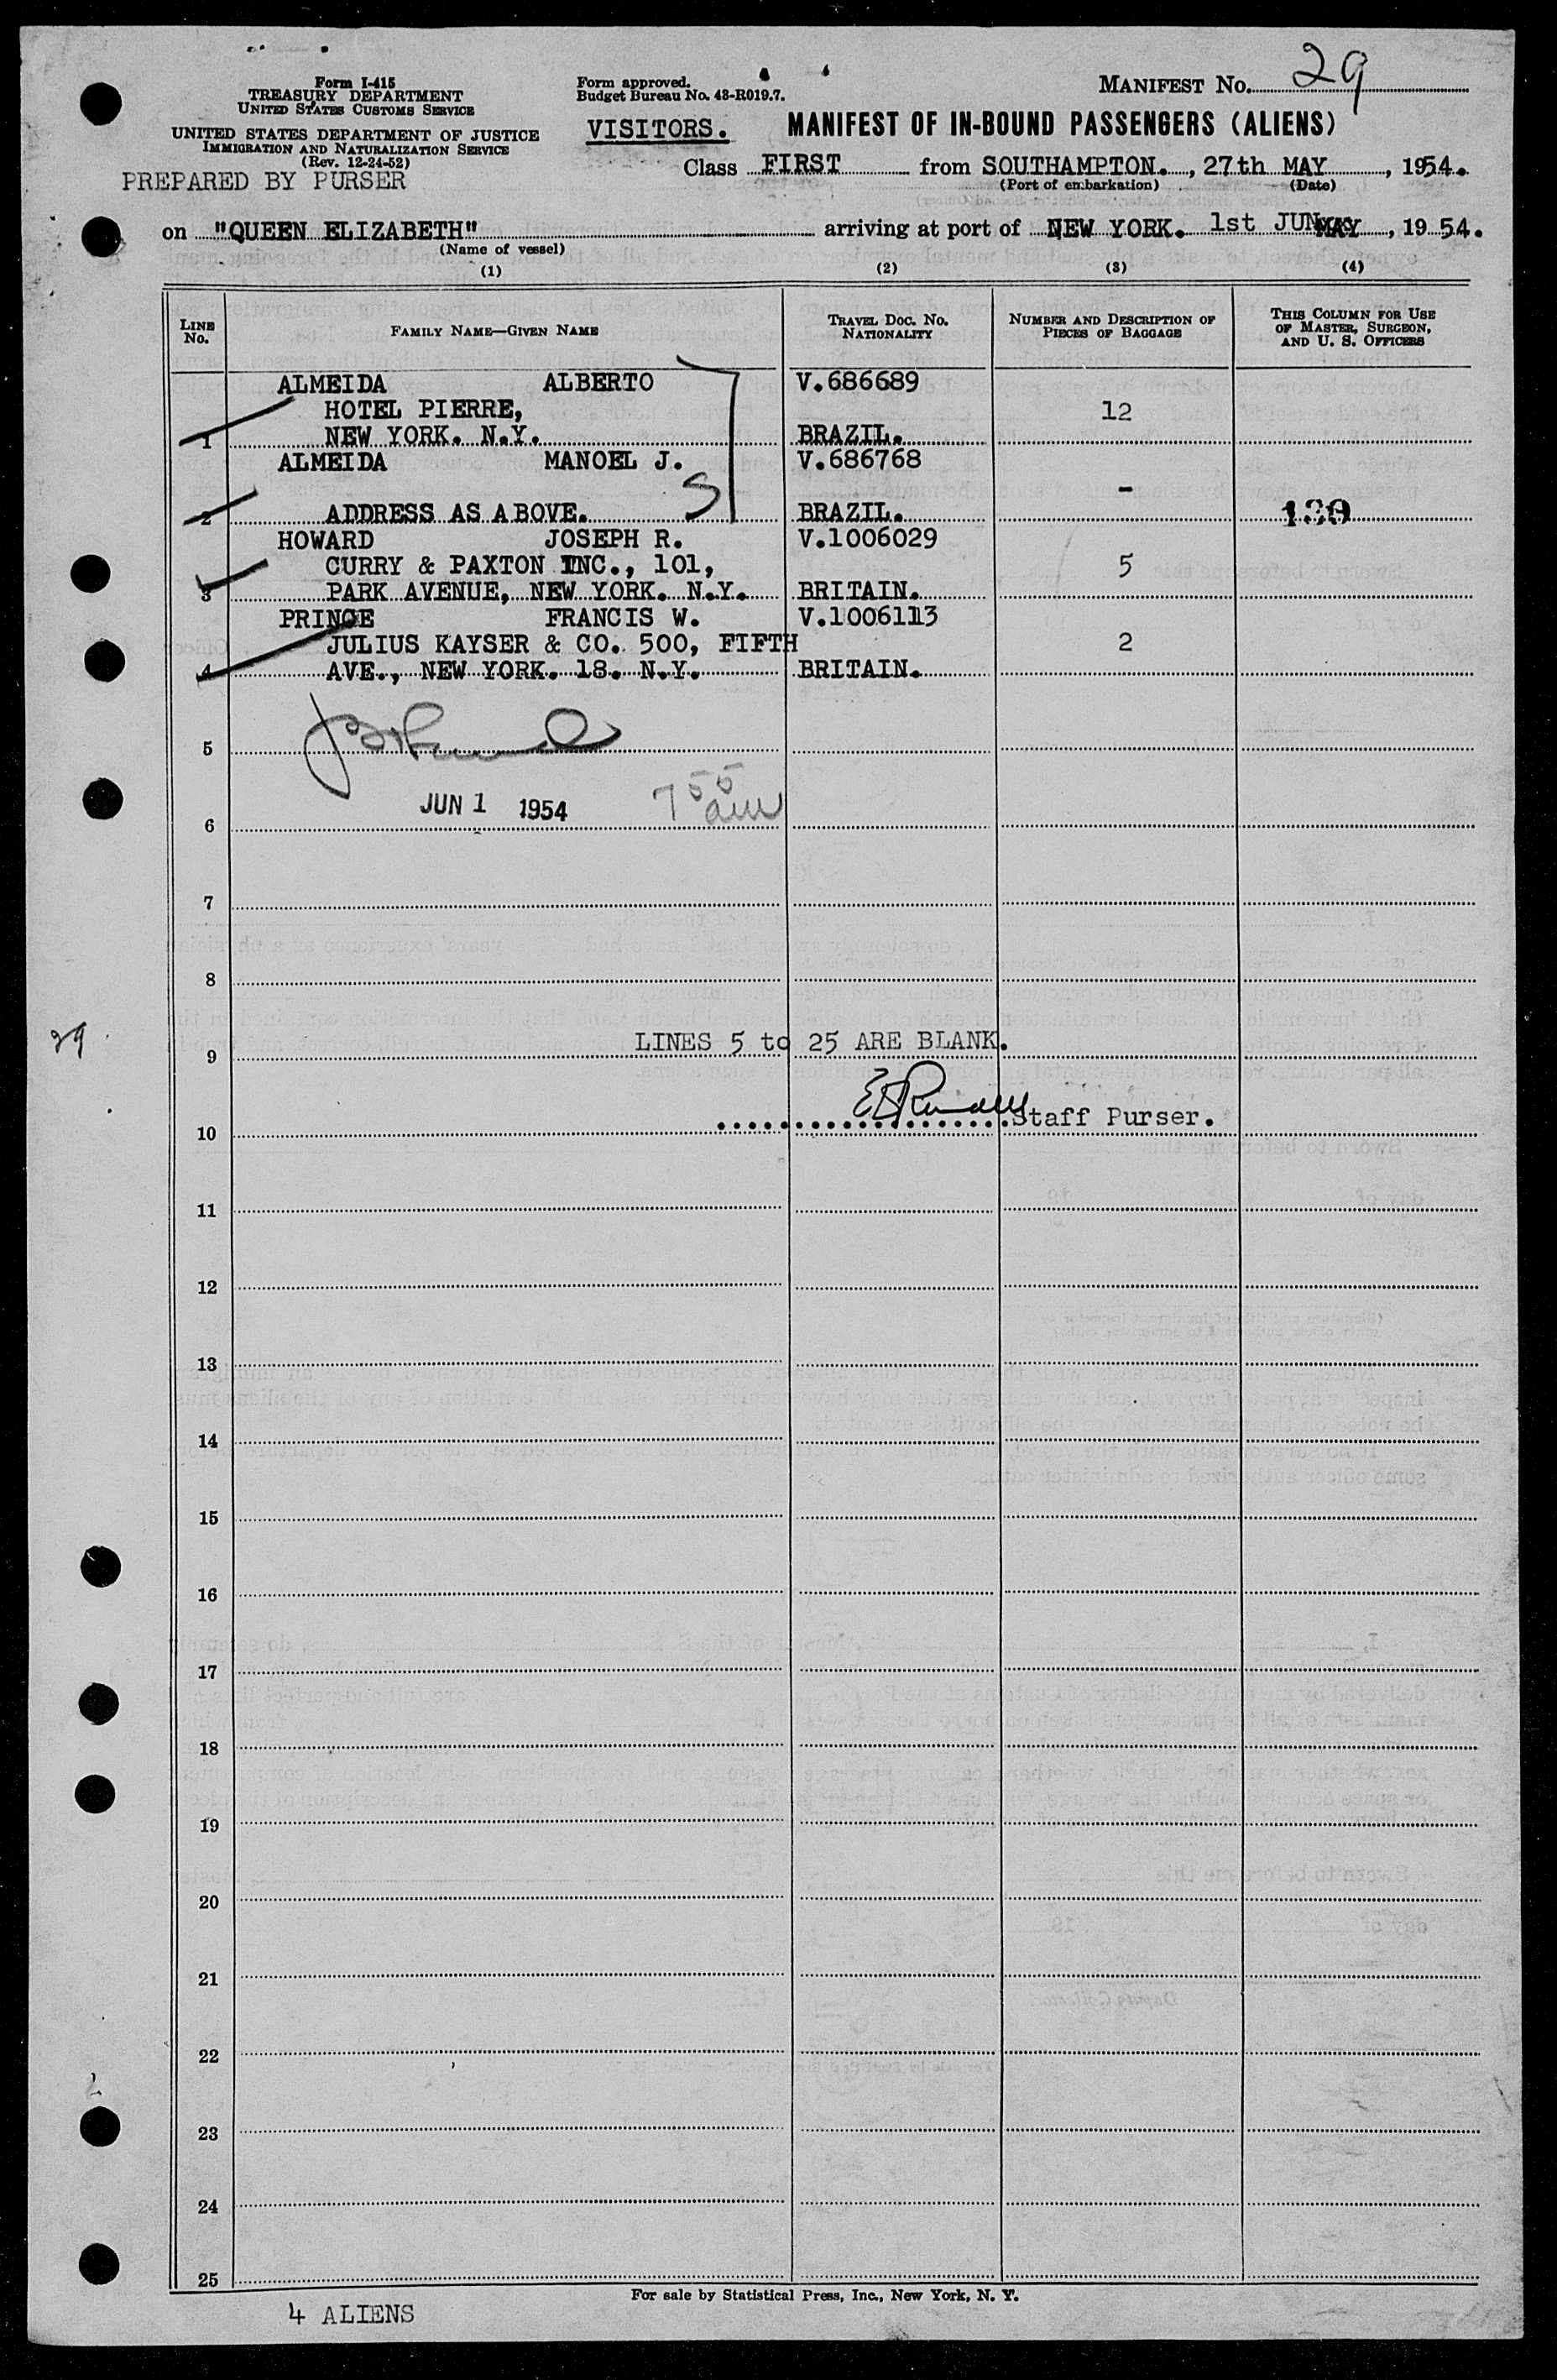 Form I-415
TREASURY DEPARTMENT
UNITED STATES CUSTOMS SERVICE
UNITED STATES DEPARTMENT OF JUSTICE
IMMIGRATION AND NATURALIZATION SERVICE
(Rev. 12-24-52)
PREPARED BY PURSER
Form approved.
Budget Bureau No. 43-R019.7.
MANIFEST No. 29
VISITORS. MANIFEST OF IN-BOUND PASSENGERS (ALIENS)
Class FIRST from SOUTHAMPTON., 27th MAY, 1954.
(Port of embarkation) (Date)
on "QUEEN ELIZABETH" arriving at port of NEW YORK. 1st JUN MAY, 1954.
(Name of vessel)
(1) (2) (3) (4)
LINE No. FAMILY NAME—GIVEN NAME TRAVEL DOC. No. NATIONALITY NUMBER AND DESCRIPTION OF PIECES OF BAGGAGE THIS COLUMN FOR USE OF MASTER, SURGEON, AND U. S. OFFICERS
ALMEIDA ALBERTO V.686689
HOTEL PIERRE, 12
1 NEW YORK. N.Y. BRAZIL.
ALMEIDA MANOEL J. V.686768
S -
2 ADDRESS AS ABOVE. BRAZIL. 139
HOWARD JOSEPH R. V.1006029
CURRY & PAXTON INC., 101, 5
3 PARK AVENUE, NEW YORK. N.Y. BRITAIN.
PRINCE FRANCIS W. V.1006113
JULIUS KAYSER & CO. 500, FIFTH 2
4 AVE., NEW YORK. 18. N.Y. BRITAIN.
5
JUN 1 1954 7 55 am
6
7
8
29
LINES 5 to 25 ARE BLANK.
9
Staff Purser.
10
11
12
13
14
15
16
17
18
19
20
21
22
23
24
25
For sale by Statistical Press, Inc., New York, N. Y.
4 ALIENS